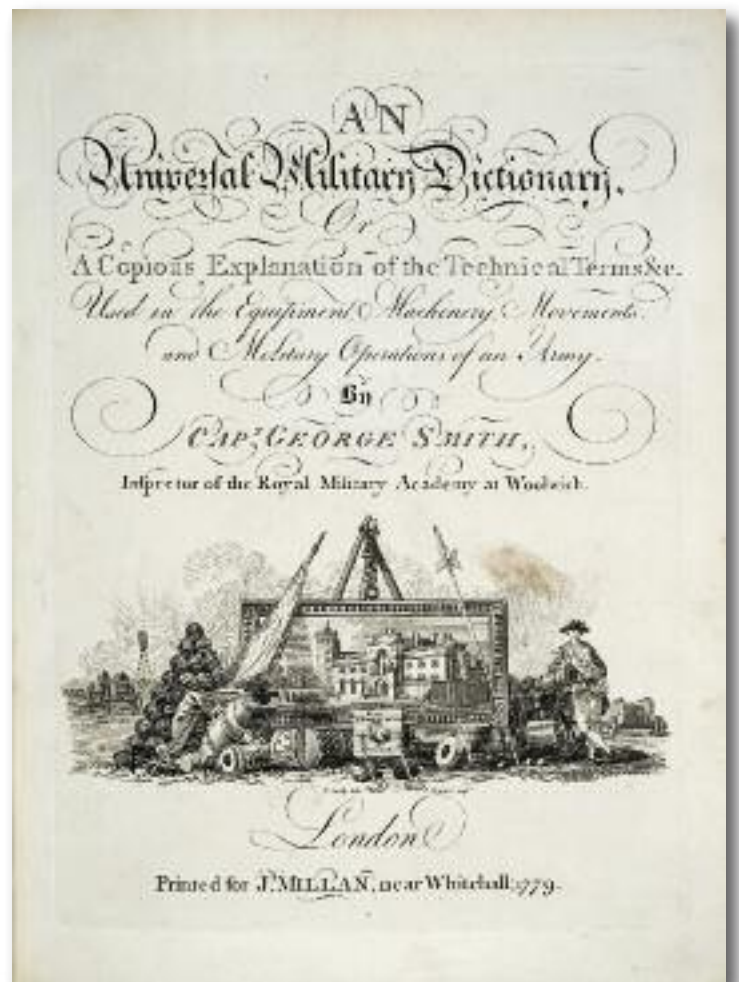 AN
Universal Military Dictionary,
Or
A Copious Explanation of the Technical Terms &c.
Used in the Equipment, Machinery, Movements,
and Military Operations of an Army.
By
CAPT. GEORGE SMITH,
Inspector of the Royal Military Academy at Woolwich.
London
Printed for J. MILLAN, near Whitehall, 1779.